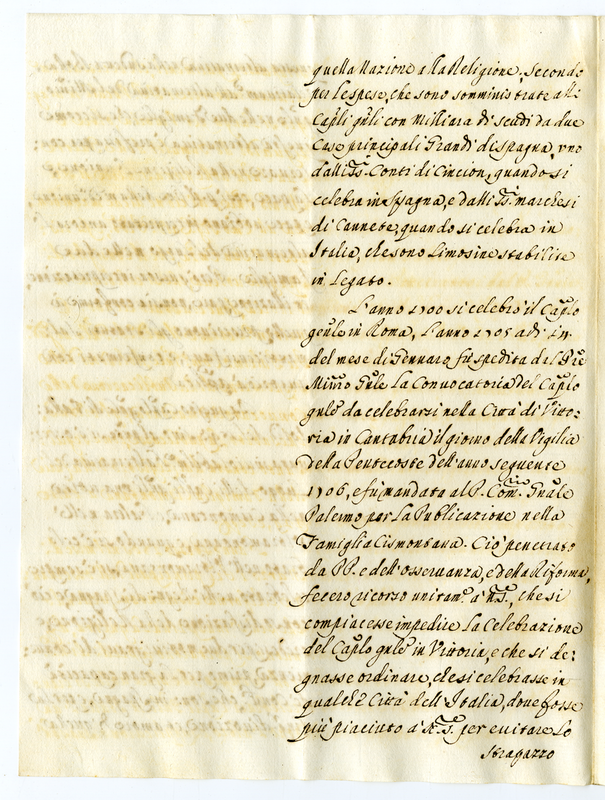 quella Nazione alla Religione; Secondo
per le spese, che sono somministrate alli
Capli gñli con Migliara di scudi da due
Case principali Grandi di spagna, vno
dalli SS. Conti di Cincion, quando si
celebra in spagna, e dalli SS. Marchesi
di Cannete, quando si celebra in
Italia, che sono Limosine stabilite
in Legato.
L'anno 1700 si celebrò il Caplo
gnle in Roma, L'anno 1705 a dì
del mese di Gennaro fù spedita dal Pre
Mñro Gnle La Convocatoria del Caplo
gnle da celebrarsi nella Città di Vitto:
ria in Cantabria il giorno della Vigilia
della Pentecoste dell'anno seguente
1706, e fù mandata al P. Com.rio Gnale
Palermo per La Publicazione nella
Famiglia Cismontana. Ciò penetrato
da PP. e dell'osseruanza, e della Riforma,
fecero ricorzo unitam.e à N.S., che si
compiacesse impedire La Celebrazione
del Caplo gnle in Vittoria, e che si de:
gnasse ordinare, che si celebrasse in
qualche Città dell'Italia, doue fosse
più piaciuto à N.S. per euitare Lo
strapazzo